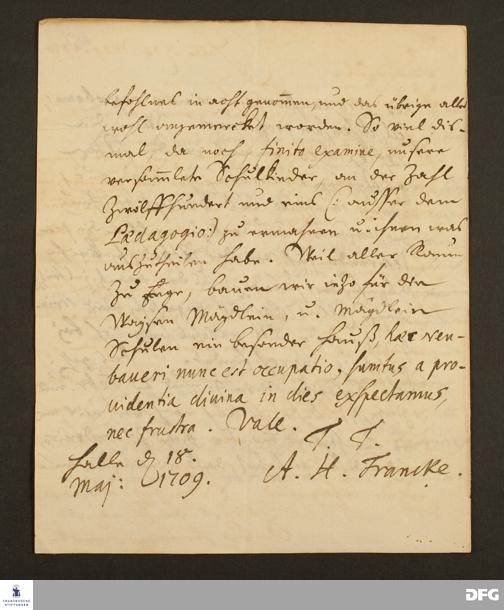 befohlnes in acht genommen, und das übrige alles
wohl angemercket worden. So viel dis-
mal, da noch, finito examine, unsere
versammlete Schulkinder, an der Zahl
Zwölffhundert und eins (: ausser dem
Pædagogio:) zu ermahnen u. ihnen was
auszutheilen habe. Weil aller Raum
zu Enge, bauen wir ietzo für der
Waysen Mägdlein, u. Mägdlein
Schulen ein besonder Hauß, hæc
baueri nunc est occupatio, sumtus a pro-
videntia divina in dies exspectamus,
nec frustra. Vale.
T. T.
Halle d. 18.
Maj: 1709.
A. H. Francke.
FRANCKESCHE
STIFTUNGEN
DFG